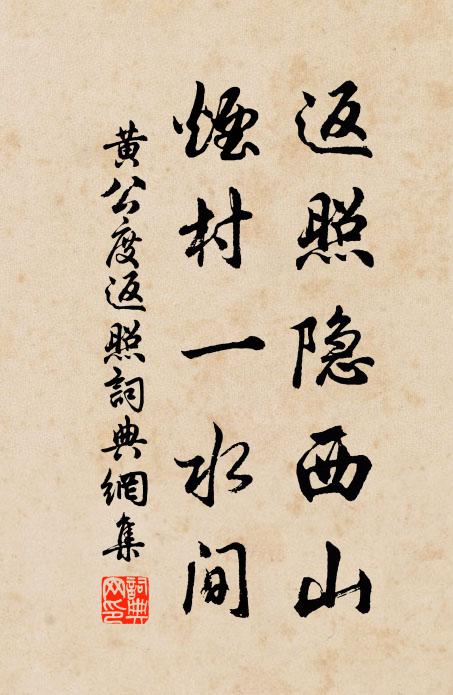 返照隐西山
烟村一水间
黄公度返照詞典網集
詞典網印